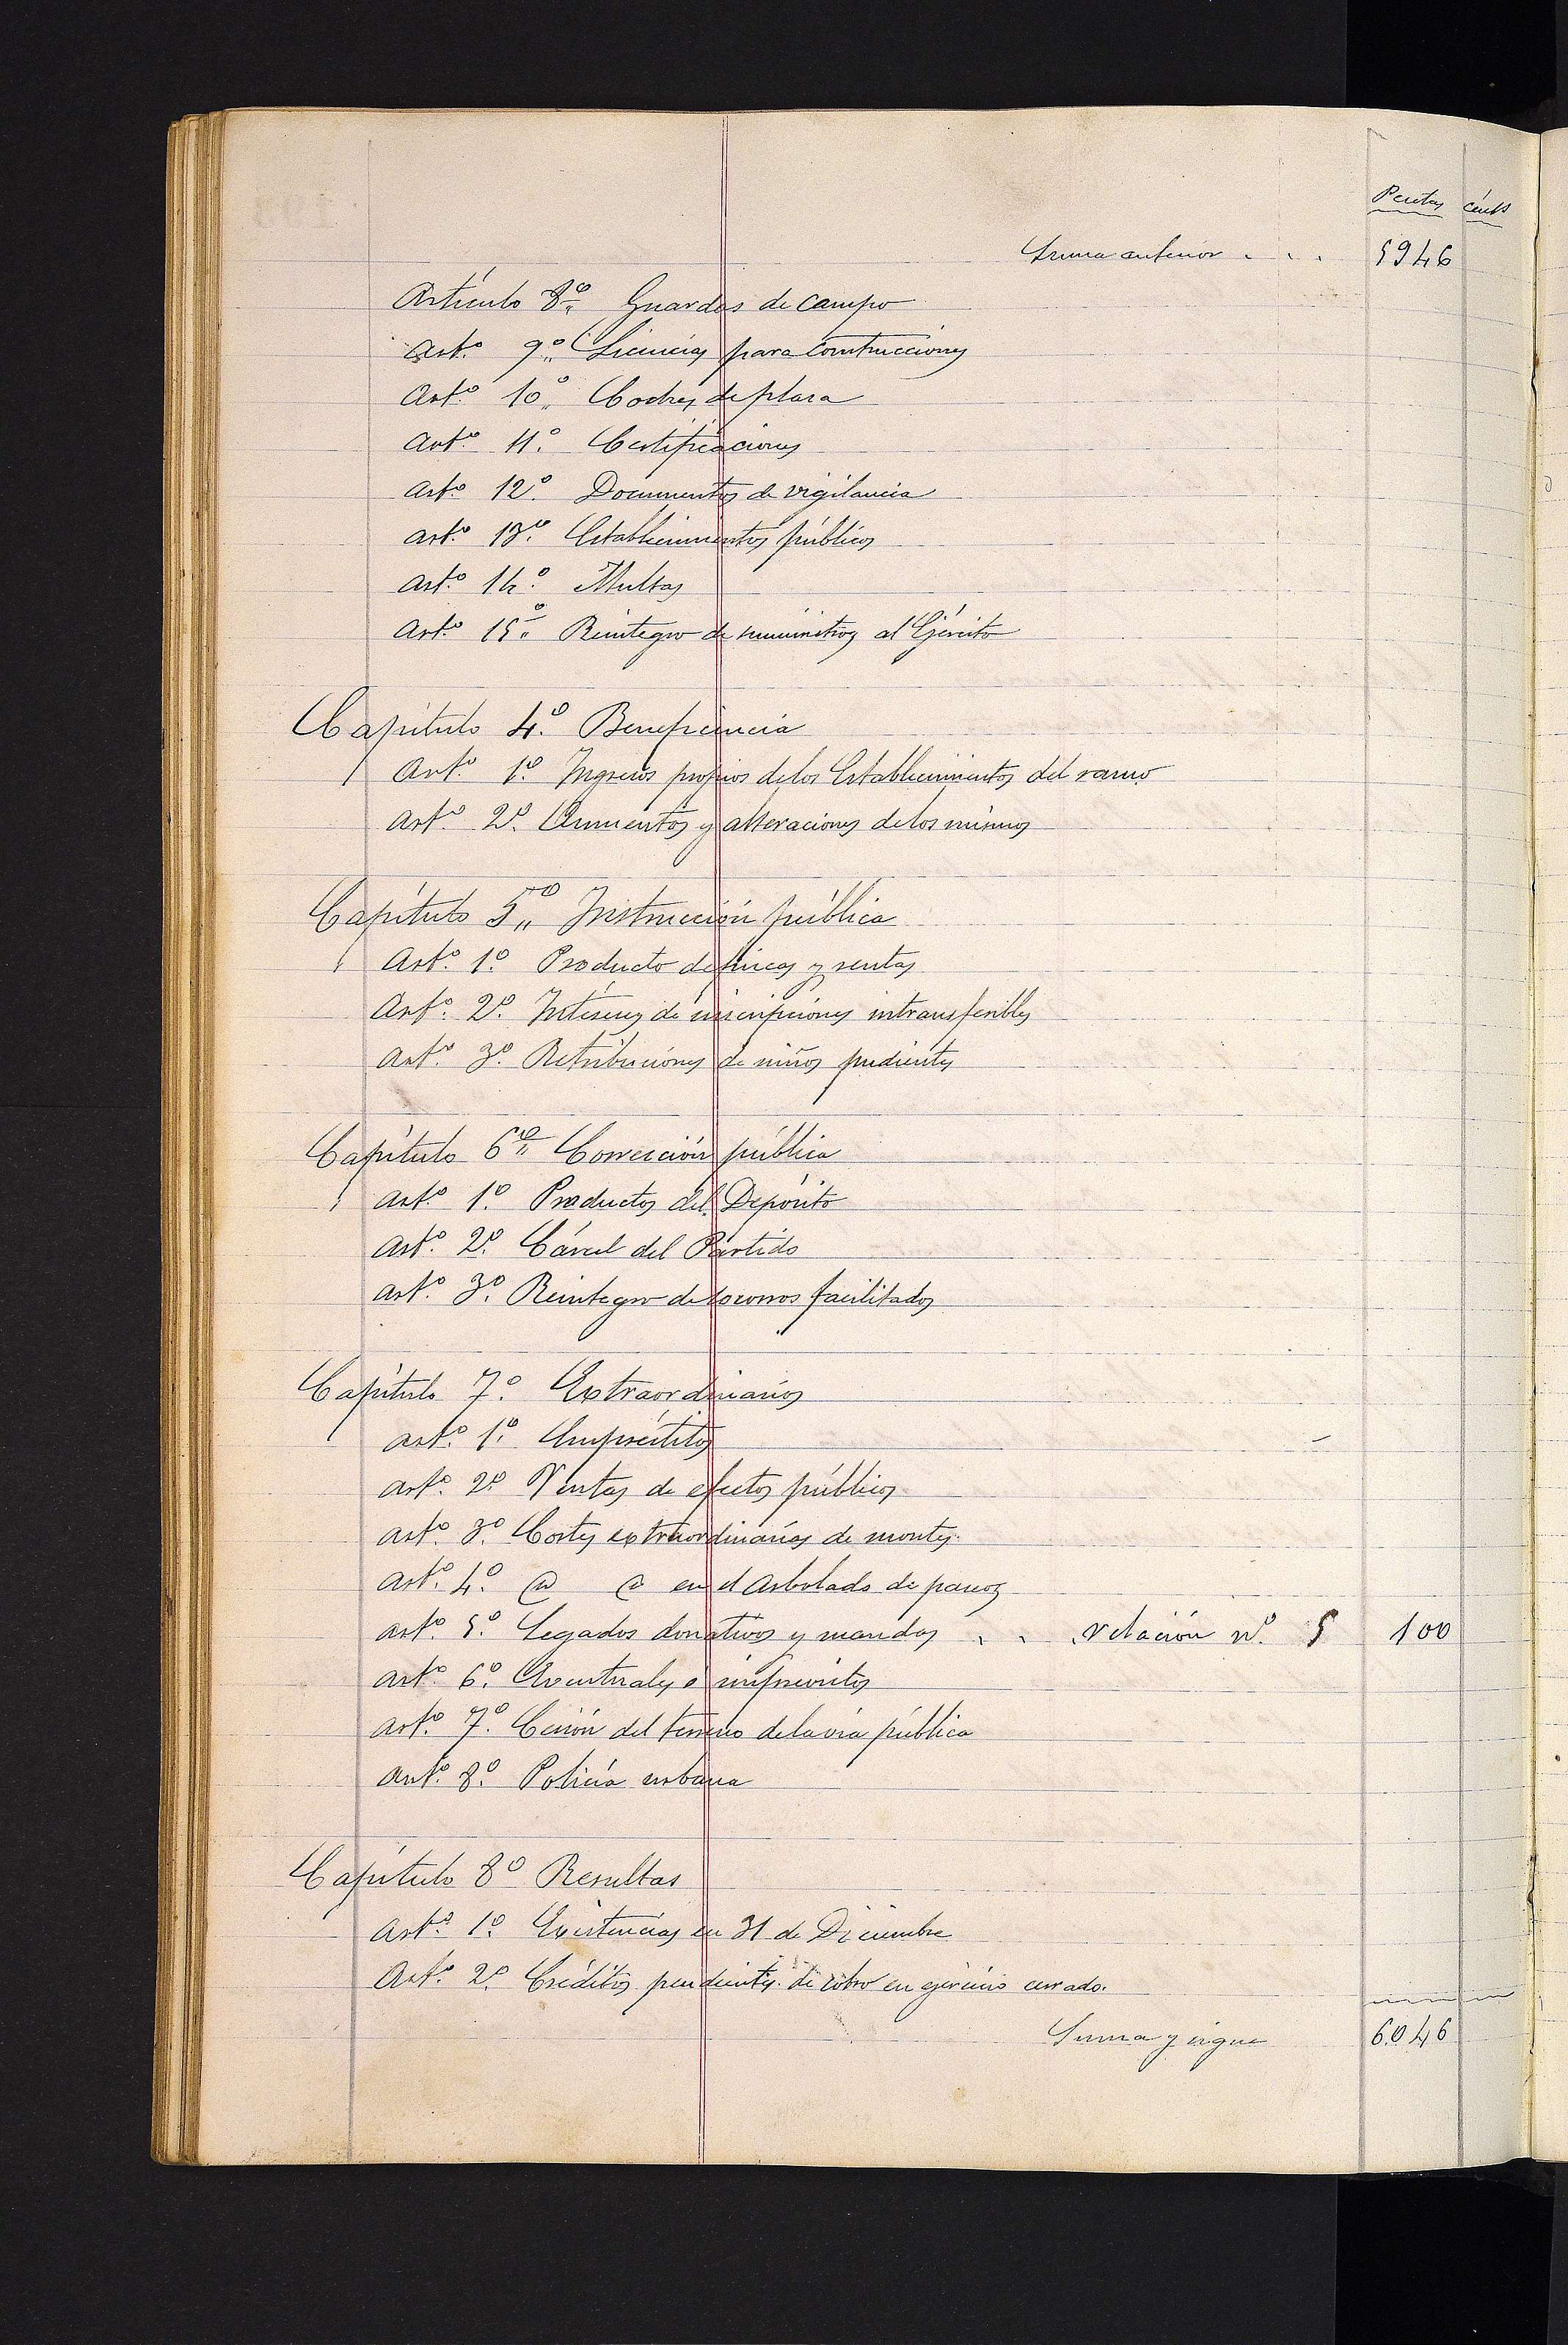 Pesetas cénts
Suma anterior . . . 5946
Artículo 8º Guardas de campo
Artº 9º Licencias para construcciones
Artº 10º Coches de plaza
Artº 11º Certificaciones
Artº 12º Documentos de vigilancia
Artº 13º Establecimientos públicos
Artº 14º Multas
Artº 15º Reintegro de suministros al Ejército
Capítulo 4º Beneficencia
Artº 1º Ingresos propios de los Establecimientos del ramo
Artº 2º Aumentos y alteraciones de los mismos
Capítulo 5º Instrucción pública
Artº 1º Producto de fincas y rentas
Artº 2º Intereses de inscripciones intransferibles
Artº 3º Retribuciones de niños pudientes
Capítulo 6º Corrección pública
Artº 1º Productos del Depósito
Artº 2º Cárcel del Partido
Artº 3º Reintegro de socorros facilitados
Capítulo 7º Extraordinarios
Artº 1º Empréstitos
Artº 2º Ventas de efectos públicos
Artº 3º Cortes extraordinarias de montes
Artº 4º @ @ en el Arbolado de paseos
Artº 5º Legados donativos y mandas . . . relación nº 5 100
Artº 6º Eventuales e imprevistos
Artº 7º Cesión del terreno de la vía pública
Artº 8º Policía urbana
Capítulo 8º Resultas
Artº 1º Existencias en 31 de Diciembre
Artº 2º Créditos pendientes de cobro en ejercicio cerrado.
Suma y sigue 6.046